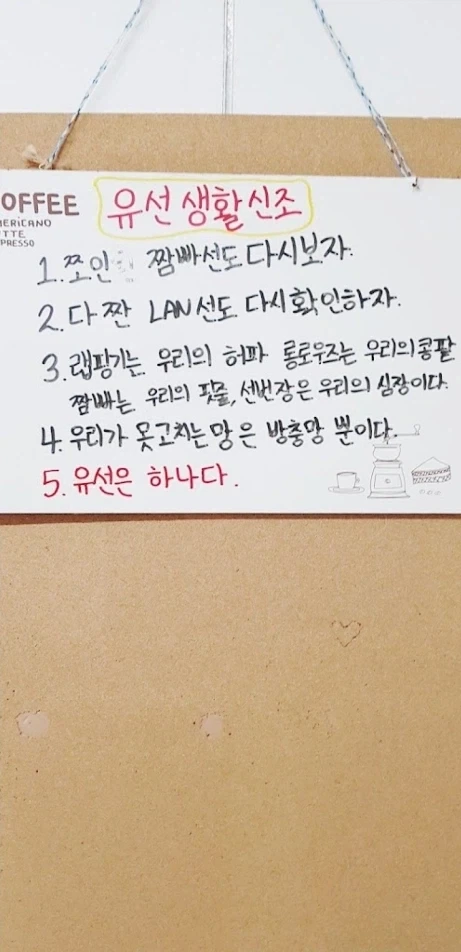 OFFEE
ERICANO
TTE
PRESSO
유선 생활신조
1. 쪼인 짬빠선도 다시보자.
2. 다 짠 LAN선도 다시 확인하자.
3. 랩핑기는 우리의 허파 롱로우즈는 우리의 콩팥
짬빠는 우리의 핏줄, 선번장은 우리의 심장이다.
4. 우리가 못고치는 망은 방충망 뿐이다.
5. 유선은 하나다.